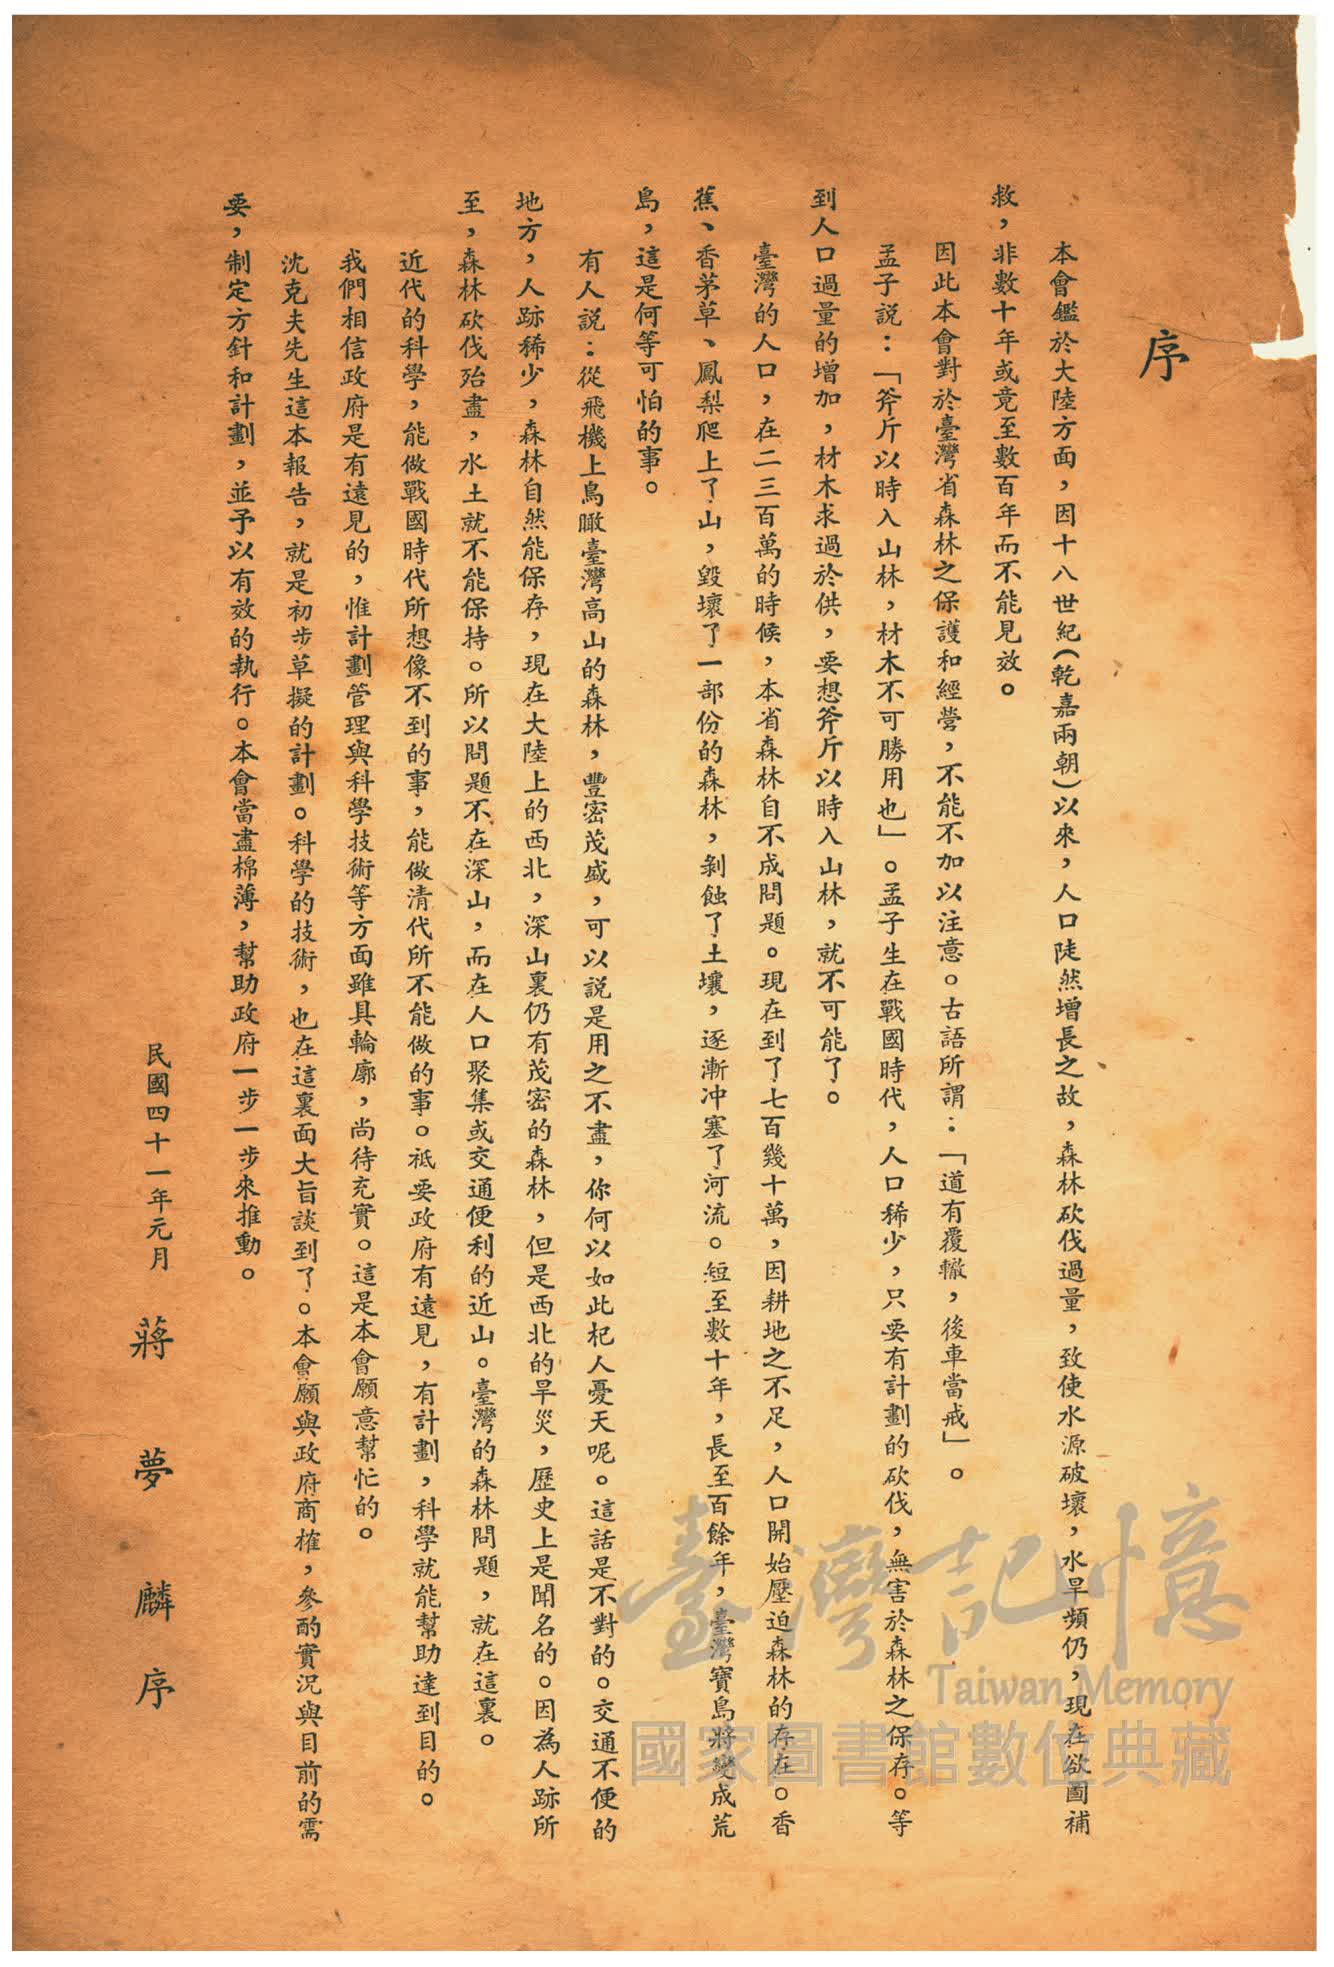 序
本會鑑於大陸方面，因十八世紀（乾嘉兩朝）以來，人口陡然增長之故，森林砍伐過量，致使水源破壞，水旱頻仍，現在欲圖補
救，非數十年或竟至數百年而不能見效。
因此本會對於臺灣省森林之保護和經營，不能不加以注意。古語所謂：「道有覆轍，後車當戒」。
孟子說：「斧斤以時入山林，材木不可勝用也」。孟子生在戰國時代，人口稀少，只要有計劃的砍伐，無害於森林之保存。等
到人口過量的增加，材木求過於供，要想斧斤以時入山林，就不可能了。
臺灣的人口，在二三百萬的時候，本省森林自不成問題。現在到了七百幾十萬，因耕地之不足，人口開始壓迫森林的存在。香
蕉、香茅草、鳳梨爬上了山，毀壞了一部份的森林，剝蝕了土壤，逐漸冲塞了河流。短至數十年，長至百餘年，臺灣寶島將變成荒
島，這是何等可怕的事。
有人說：從飛機上鳥瞰臺灣高山的森林，豐密茂盛，可以說是用之不盡，你何以如此杞人憂天呢。這話是不對的。交通不便的
地方，人跡稀少，森林自然能保存，現在大陸上的西北，深山裏仍有茂密的森林，但是西北的旱災，歷史上是聞名的。因為人跡所
至，森林砍伐殆盡，水土就不能保持。所以問題不在深山，而在人口聚集或交通便利的近山。臺灣的森林問題，就在這裏。
近代的科學，能做戰國時代所想像不到的事，能做清代所不能做的事。祇要政府有遠見，有計劃，科學就能幫助達到目的。
我們相信政府是有遠見的，惟計劃管理與科學技術等方面雖具輪廓，尚待充實。這是本會願意幫忙的。
沈克夫先生這本報告，就是初步草擬的計劃。科學的技術，也在這裏面大旨談到了。本會願與政府商榷，參酌實況與目前的需
要，制定方針和計劃，並予以有效的執行。本會當盡棉薄，幫助政府一步一步來推動。
民國四十一年元月 蔣夢麟序
臺灣記憶
Taiwan Memory
國家圖書館數位典藏